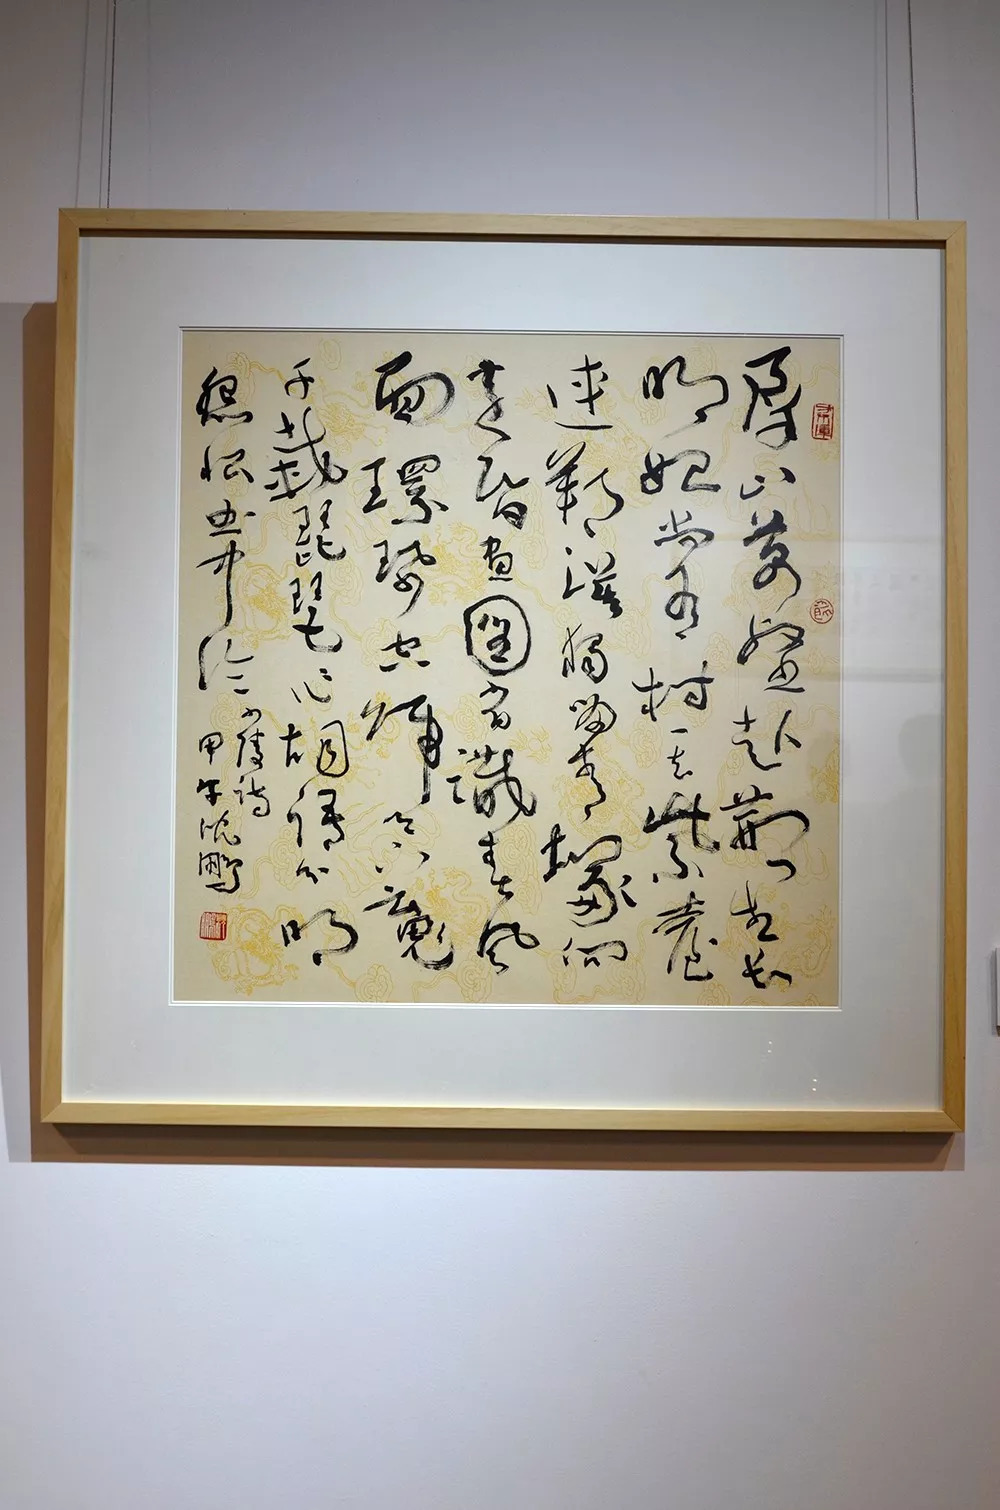 羣山萬壑赴荆门生長
明妃尚有村一去紫臺
連朔漠獨留青塚向
黄昏畫圖省識春風
面環珮空歸夜月魂
千載琵琶作胡語分明
怨恨曲中論
少陵詩
甲午沈鹏